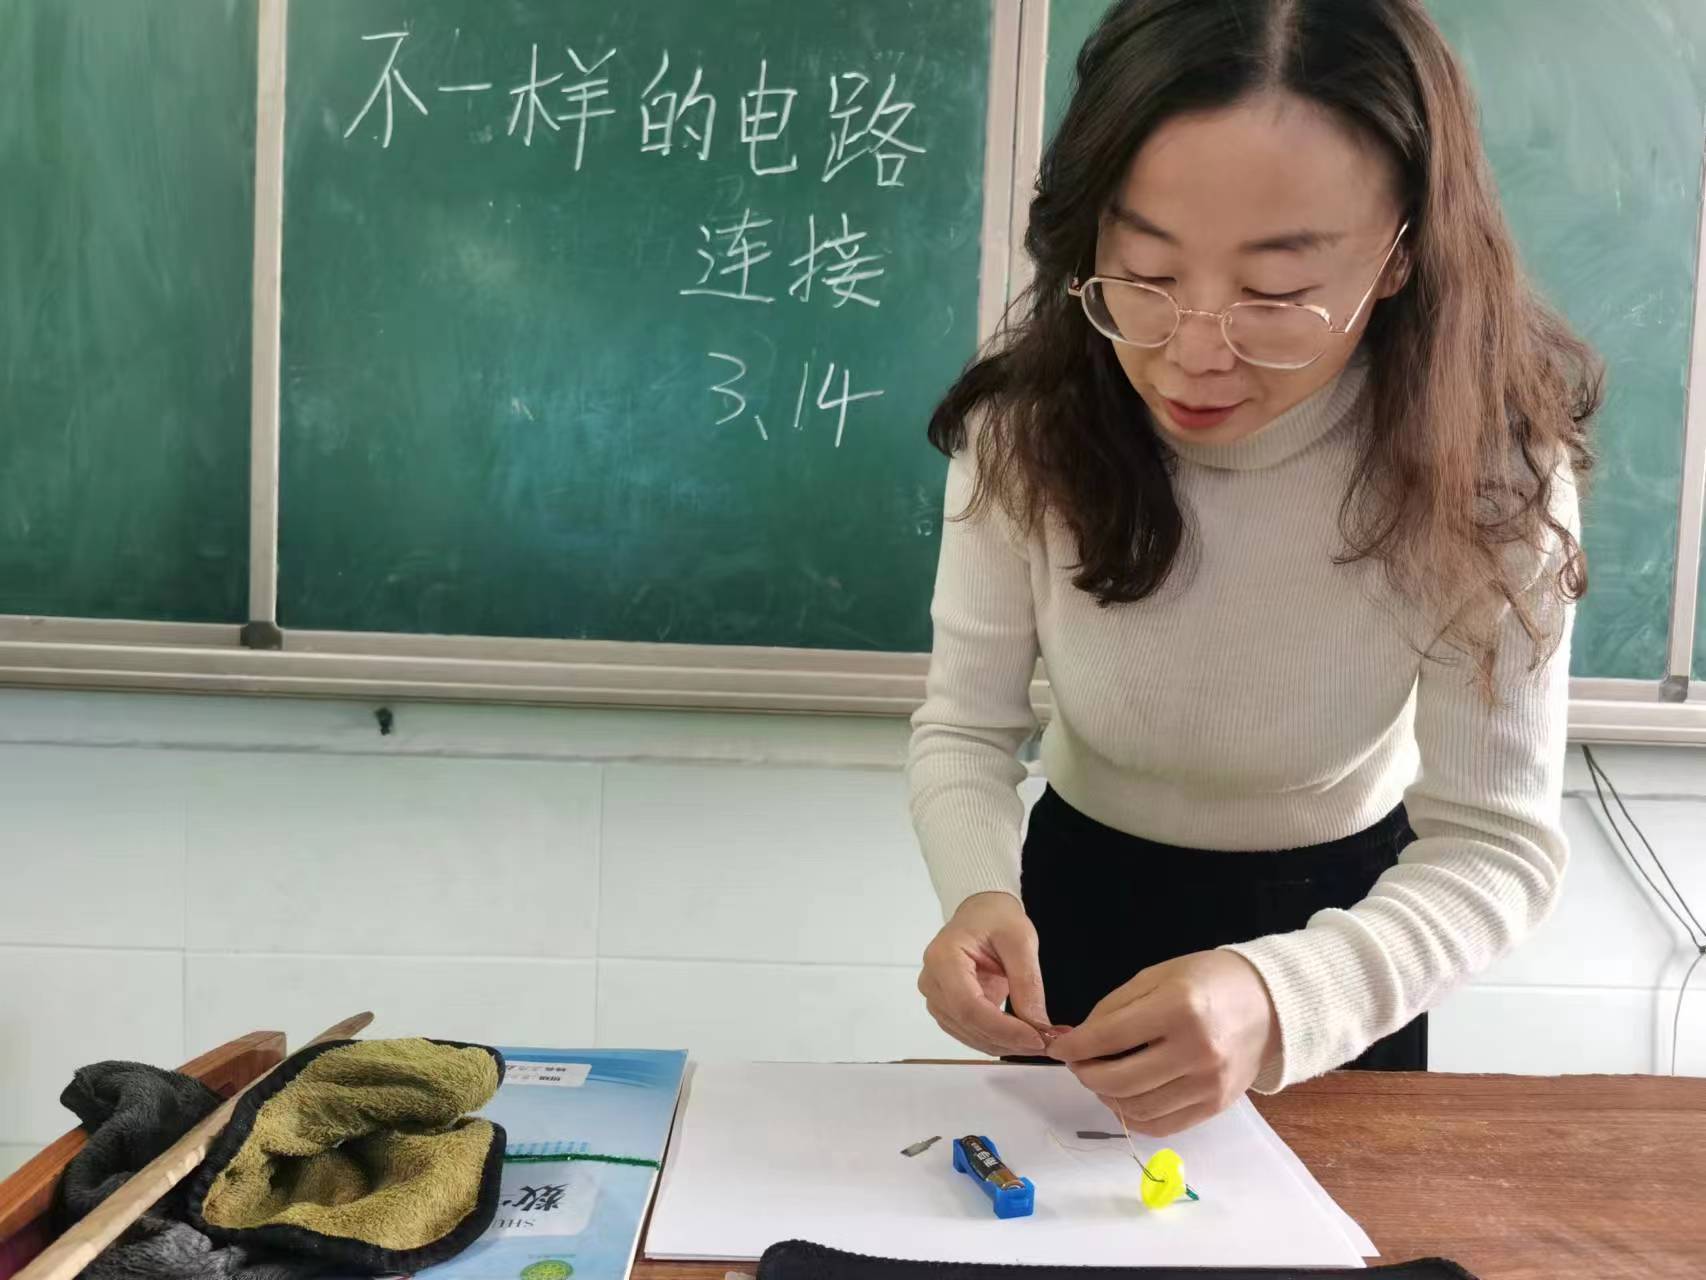 不一样的电路
连接
3、14
数
SHU